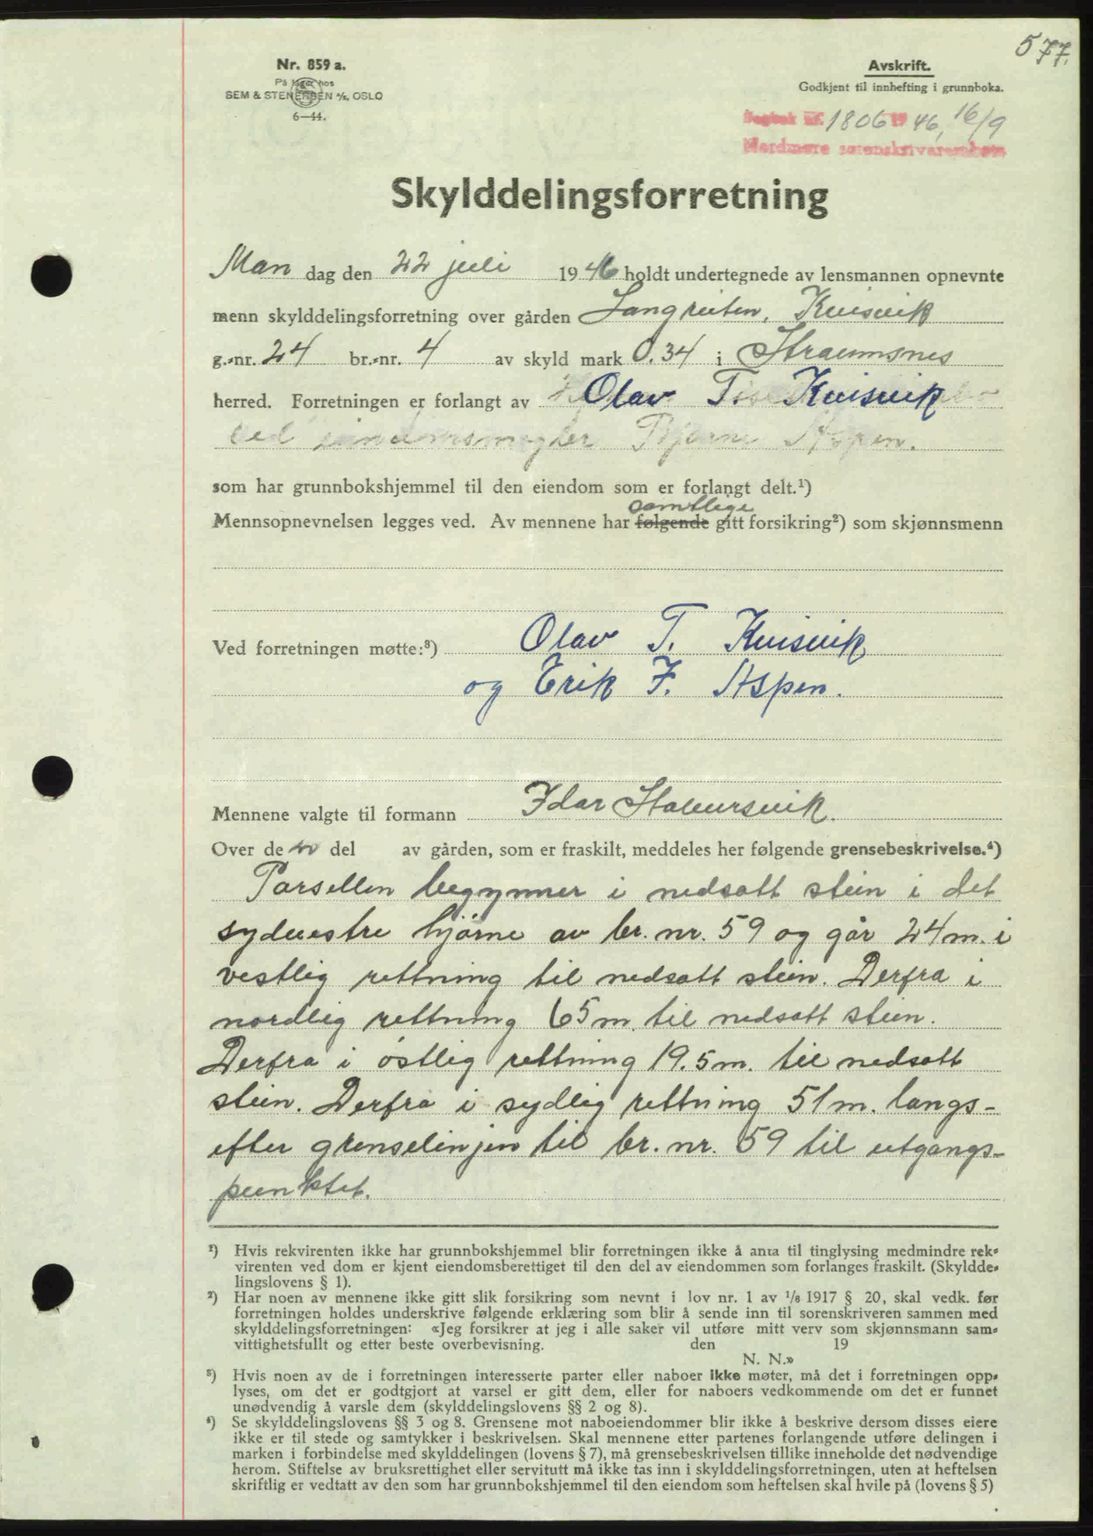 577.
Nr. 859 a.
På lager hos
SEM & STENERSEN A/S, OSLO
6—44.
Avskrift.
Godkjent til innhefting i grunnboka.
Dagbok nr. 1806 1946, 16/9
Nordmøre sorenskriverembete
Skylddelingsforretning
Man dag den 22 juli 1946 holdt undertegnede av lensmannen opnevnte
menn skylddelingsforretning over gården Langreiten, Kvisvik
g.-nr. 24 br.-nr. 4 av skyld mark 0.34 i Straumsnes
herred. Forretningen er forlangt av Olav T. Kvisvik
ved eiendomsmegler Bjarne Aspen.
som har grunnbokshjemmel til den eiendom som er forlangt delt.¹)
samtlige
Mennsopnevnelsen legges ved. Av mennene har følgende gitt forsikring²) som skjønnsmenn
Ved forretningen møtte:³) Olav T. Kvisvik
og Erik F. Aspen.
Mennene valgte til formann Idar Stavursvik.
Over den del av gården, som er fraskilt, meddeles her følgende grensebeskrivelse.⁴)
Parsellen begynner i nedsatt stein i det
sydvestre hjørne av br. nr. 59 og går 24 m. i
vestlig rettning til nedsatt stein. Derfra i
nordlig rettning 65 m. til nedsatt stein.
Derfra i østlig rettning 19.5 m. til nedsatt
stein. Derfra i sydlig rettning 51 m. langs-
efter grenselinjen til br. nr. 59 til utgangs-
punktet.
¹) Hvis rekvirenten ikke har grunnbokshjemmel blir forretningen ikke å anta til tinglysing medmindre rek-
virenten ved dom er kjent eiendomsberettiget til den del av eiendommen som forlanges fraskilt. (Skyldde-
lingslovens § 1).
²) Har noen av mennene ikke gitt slik forsikring som nevnt i lov nr. 1 av 1/8 1917 § 20, skal vedk. før
forretningen holdes underskrive følgende erklæring som blir å sende inn til sorenskriveren sammen med
skylddelingsforretningen: «Jeg forsikrer at jeg i alle saker vil utføre mitt verv som skjønnsmann sam-
vittighetsfullt og etter beste overbevisning. den 19
N. N.»
³) Hvis noen av de i forretningen interesserte parter eller naboer ikke møter, må det i forretningen opp-
lyses, om det er godtgjort at varsel er gitt dem, eller for naboers vedkommende om det er funnet
unødvendig å varsle dem (skylddelingslovens §§ 2 og 8).
⁴) Se skylddelingslovens §§ 3 og 8. Grensene mot naboeiendommer blir ikke å beskrive dersom disses eiere
ikke er til stede og samtykker i beskrivelsen. Skal mennene etter partenes forlangende utføre delingen i
marken i forbindelse med skylddelingen (lovens § 7), må grensebeskrivelsen tillike inneholde det nødvendige
herom. Stiftelse av bruksrettighet eller servitutt må ikke tas inn i skylddelingsforretningen, uten at heftelsen
skriftlig er vedtatt av den som har grunnbokshjemmel til den eiendom som heftelsen skal hvile på (lovens § 5)